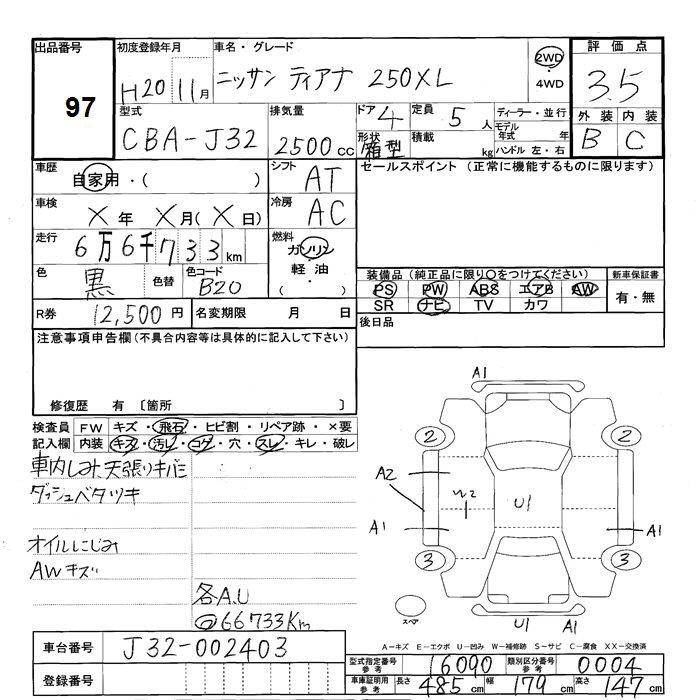 出品番号 97
初度登録年月 H20 11月
車名・グレード ニッサン ティアナ 250XL
2WD ・ 4WD
評価点 3.5
外装 内装
B C
型式 CBA-J32
排気量 2500cc
ドア 4
形状 箱型
定員 5人
積載 kg
ディーラー・並行
モデル年式 年
ハンドル 左・右
車歴 自家用・( )
シフト AT
セールスポイント (正常に機能するものに限ります)
車検 X年 X月(X日)
冷房 AC
走行 6万6千733km
燃料 ガソリン
軽油・
( ・ )
色 黒 色替
色コード B20
装備品 (純正品に限り○をつけてください)
新車保証書
PS PW ABS エアB AW
SR ナビ TV カワ
有・無
R券 12,500円
名変期限 月 日
後日品
注意事項申告欄(不具合内容等は具体的に記入して下さい)
修復歴 有〔箇所 〕
検査員 FW キズ・飛石・ヒビ割・リペア跡・×要
記入欄 内装 キズ・汚レ・コゲ・穴・スレ・キレ・破レ
車内しみ、天張りキバミ
ダッシュベタツキ
オイルにじみ
AWキズ
各A.U
@66733Km
A1
2 2
A2
U1
A1 A1
3 3
スペア
U1 A1
A-キズ E-エクボ U-凹み W-補修跡 S-サビ C-腐食 XX-交換済
車台番号 J32-002403
登録番号
型式指定番号 参考 16090
類別区分番号 参考 0004
車庫証明用 参考 長さ 485cm 幅 179cm 高さ 147cm